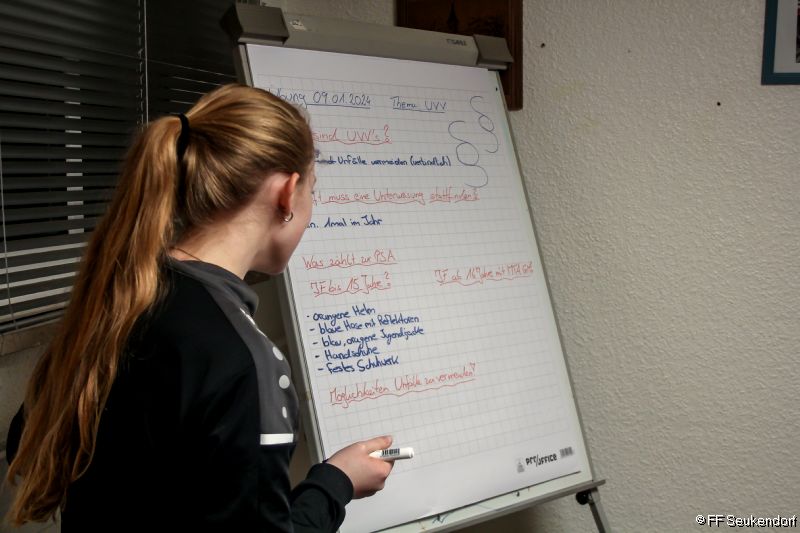 09.01.2024 Thema UVV
sind UVV's?
Unfälle vermeiden (verbindlich)
muss eine Unterweisung stattfinden?
1mal im Jahr
Was zählt zur PSA
JF bis 15 Jahre? JF ab 16 Jahre mit MTA
- orangene Helm
- blaue Hose mit Reflektoren
- blau, orangene Jugendjacke
- Handschuhe
- festes Schuhwerk
Möglichkeiten Unfälle zu vermeiden?
PRO/OFFICE
© FF Seukendorf